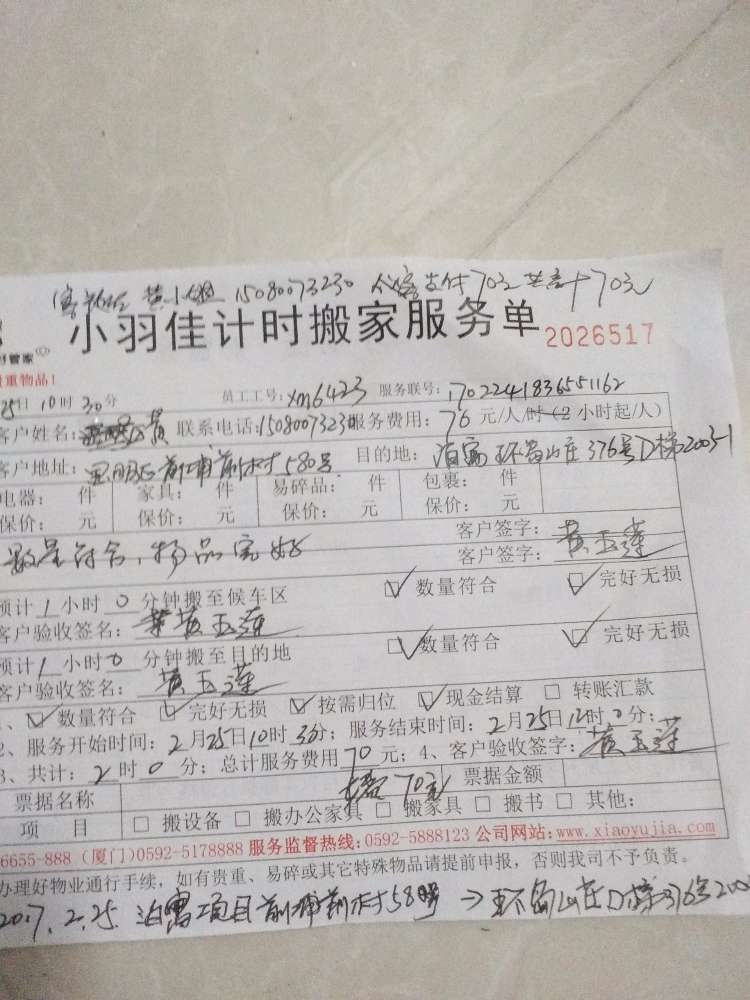 黄小姐 15080073230 支付70元 70元
小羽佳计时搬家服务单 2026517
好管家
贵重物品!
25日10时30分 员工工号:xm6423 服务联号:1702241836551162
客户姓名: 黄 联系电话:15080073230 服务费用:76元/人/时(2小时起/人)
客户地址: 前埔前村580号 目的地:泊寓环岛山庄376号D梯2003-1
电器: 件 家具: 件 易碎品: 件 包裹: 件
保价: 元 保价: 元 保价: 元 保价: 元
客户签字:
数量符合,物品完好 客户签字:黄玉莲
预计1小时0分钟搬至候车区 ☑数量符合 ☑完好无损
客户验收签名:黄玉莲
预计1小时0分钟搬至目的地 ☑数量符合 ☑完好无损
客户验收签名:黄玉莲
1、☑数量符合 ☑完好无损 ☑按需归位 ☑现金结算 □转账汇款
2、服务开始时间:2月25日10时30分;服务结束时间:2月25日12时0分;
3、共计:2时0分;总计服务费用70元;4、客户验收签字:黄玉莲
票据名称 70元 票据金额
项 目 □搬设备 □搬办公家具 □搬家具 □搬书 □其他:
6655-888 (厦门)0592-5178888 服务监督热线:0592-5888123 公司网站:www.xiaoyujia.com
办理好物业通行手续,如有贵重、易碎或其它特殊物品请提前申报,否则我司不予负责。
2017.2.25 泊寓项目前埔前村580号→环岛山庄D梯376号200